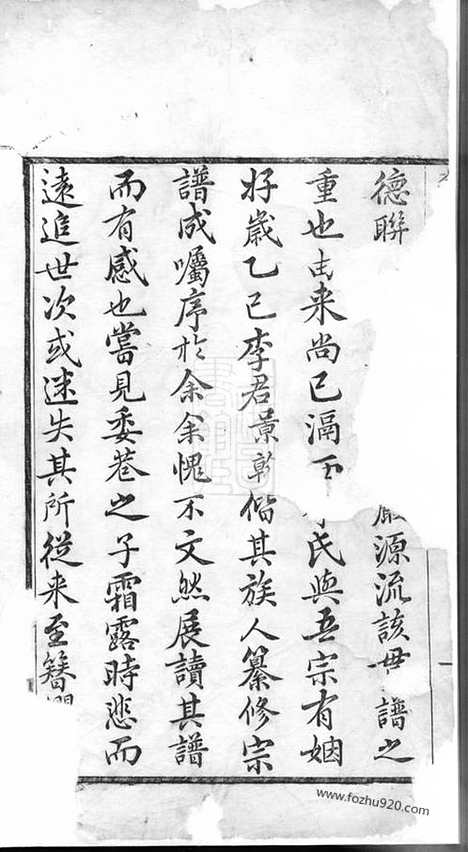 德聯源流該毋譜之
重也由来尚已滆氏與吾宗有姻
好歲乙巳李君景偕其族人纂修宗
譜成囑序於余余愧不文然展讀其譜
而有感也嘗見委巷之子霜露時悲而
遠追世次或迷失其所從来至簪
www.fozhu920.com